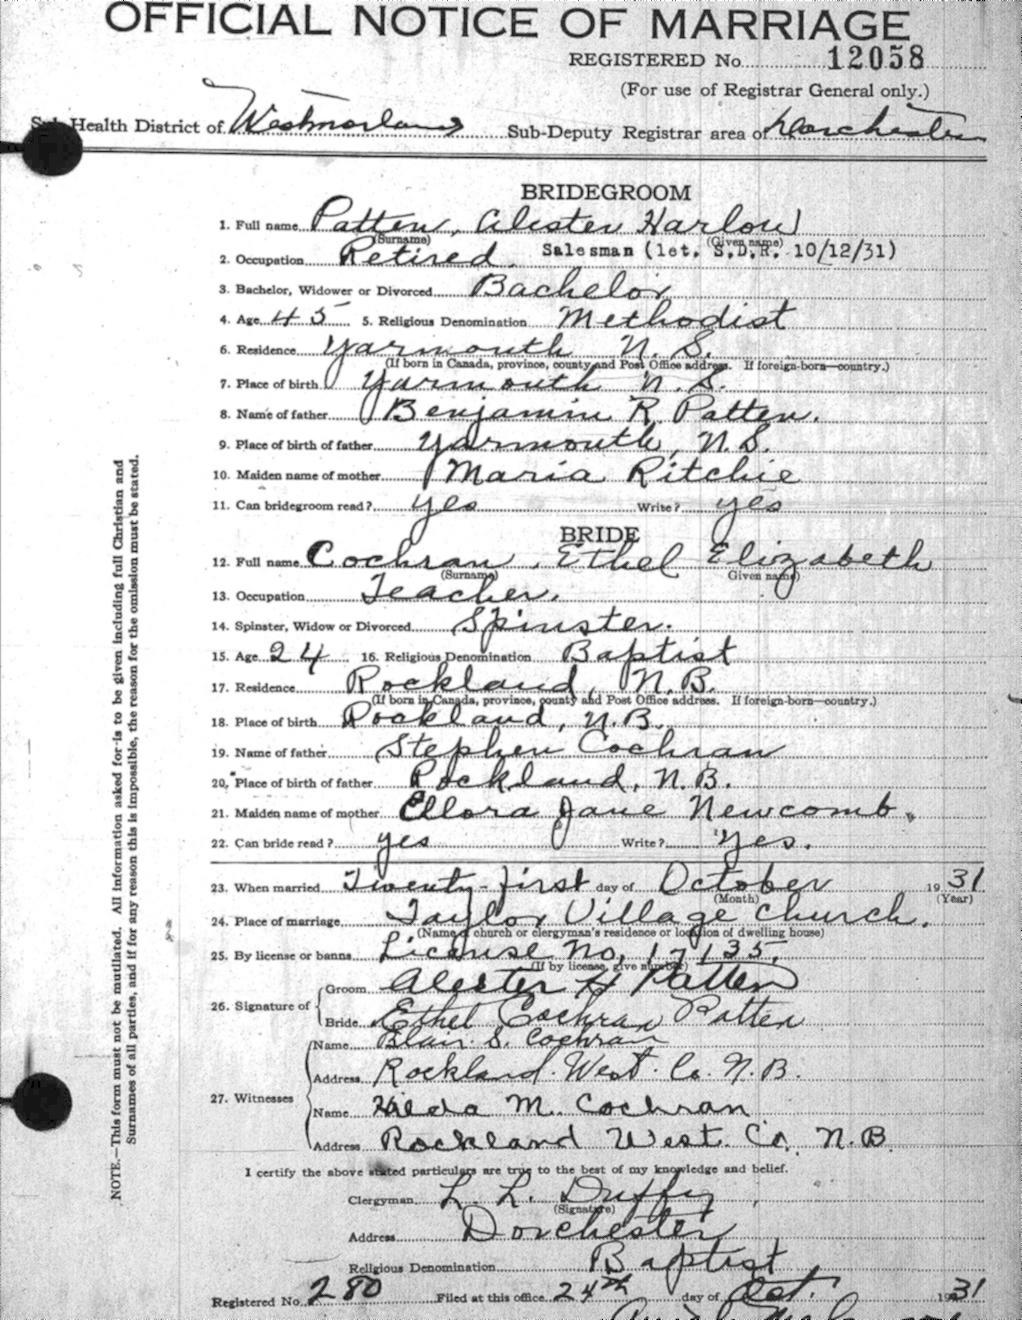 OFFICIAL NOTICE OF MARRIAGE
REGISTERED No. 12058
(For use of Registrar General only.)
Sub-Health District of Westmorland Sub-Deputy Registrar area of Dorchester
BRIDEGROOM
1. Full name Patten, Alester Harlow
(Surname) (Given name)
2. Occupation Retired Salesman (let. S.D.R. 10/12/31)
3. Bachelor, Widower or Divorced Bachelor
4. Age 45 5. Religious Denomination Methodist
6. Residence Yarmouth N.S.
(If born in Canada, province, county and Post Office address. If foreign-born—country.)
7. Place of birth Yarmouth N.S.
8. Name of father Benjamin R. Patten.
9. Place of birth of father Yarmouth, N.S.
10. Maiden name of mother Maria Ritchie
11. Can bridegroom read? yes Write? yes
BRIDE
12. Full name Cochran, Ethel Elizabeth
(Surname) Given name)
13. Occupation Teacher.
14. Spinster, Widow or Divorced Spinster.
15. Age 24 16. Religious Denomination Baptist
17. Residence Rockland, N.B.
(If born in Canada, province, county and Post Office address. If foreign-born—country.)
18. Place of birth Rockland, N.B.
19. Name of father Stephen Cochran
20. Place of birth of father Rockland, N.B.
21. Maiden name of mother Ellora Jane Newcomb.
22. Can bride read? yes Write? yes.
23. When married Twenty-first day of October 1931
(Month) (Year)
24. Place of marriage Taylor Village Church.
(Name of church or clergyman's residence or location of dwelling house)
25. By license or banns License No. 17135.
(If by license, give number)
26. Signature of Groom Alester H Patten
Bride Ethel Cochran Patten
27. Witnesses Name Blair S. Cochran
Address Rockland. West. Co. N.B.
Name Hilda M. Cochran
Address Rockland West. Co. N.B.
I certify the above stated particulars are true to the best of my knowledge and belief.
Clergyman L. L. Duffy
(Signature)
Address Dorchester
Religious Denomination Baptist
Registered No. 280 Filed at this office 24th day of Oct. 1931
NOTE.—This form must not be mutilated. All information asked for is to be given including full Christian and
Surnames of all parties, and if for any reason this is impossible, the reason for the omission must be stated.